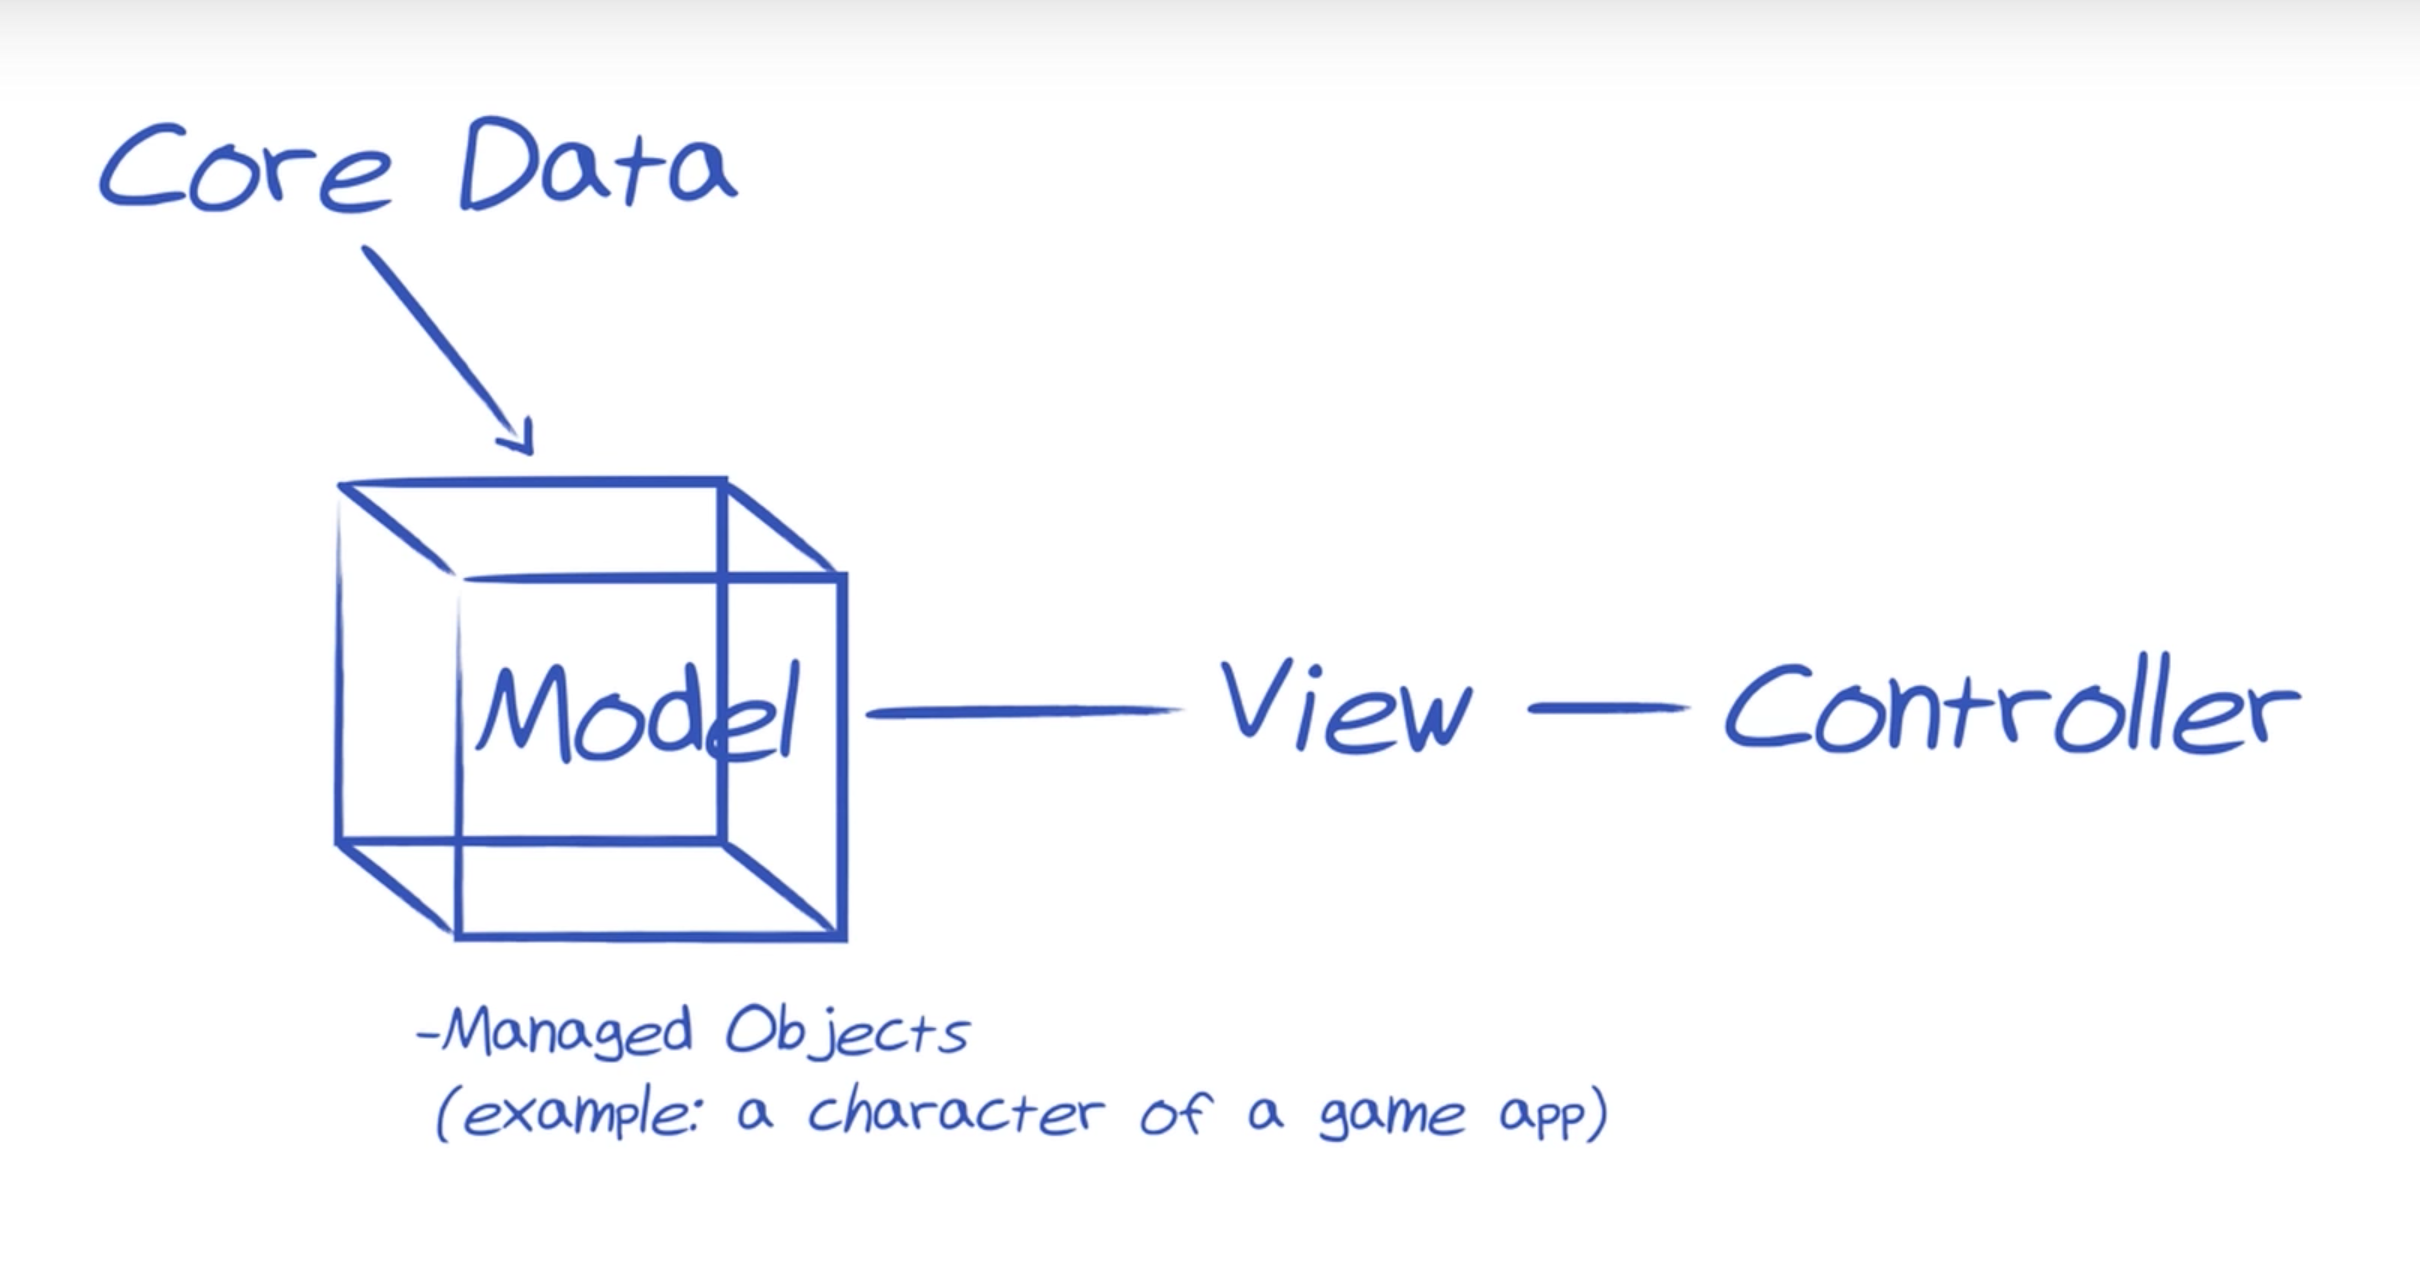 Core Data
Model — View — Controller
-Managed Objects
(example: a character of a game app)